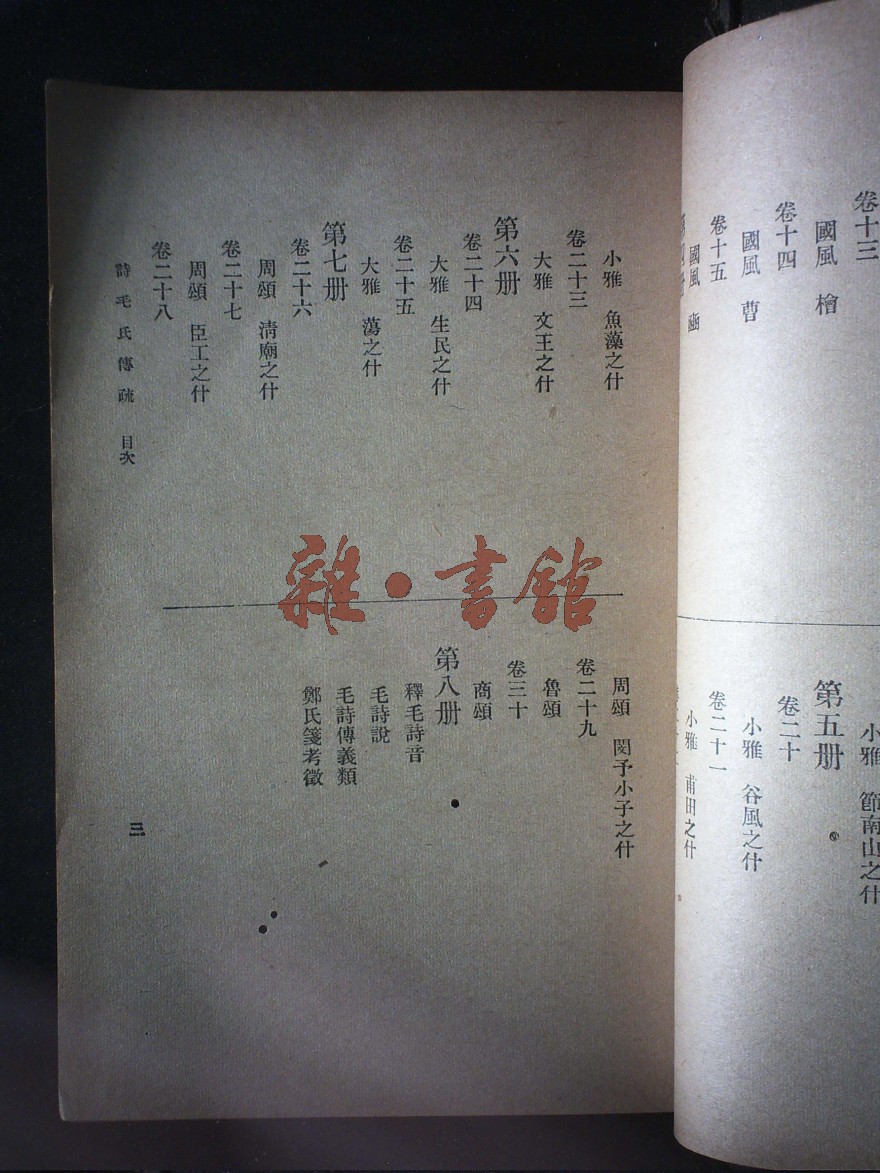 卷十三
國風 檜
卷十四
國風 曹
卷十五
國風 豳
小雅 節南山之什
第五册
卷二十
小雅 谷風之什
卷二十一
小雅 甫田之什
小雅 魚藻之什
卷二十三
大雅 文王之什
第六册
卷二十四
大雅 生民之什
卷二十五
大雅 蕩之什
第七册
卷二十六
周頌 清廟之什
卷二十七
周頌 臣工之什
卷二十八
周頌 閔予小子之什
卷二十九
魯頌
卷三十
商頌
第八册
釋毛詩音
毛詩說
毛詩傳義類
鄭氏箋考徵
詩毛氏傳疏 目次
三
雜·書館